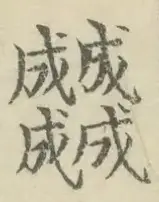 成成
成成